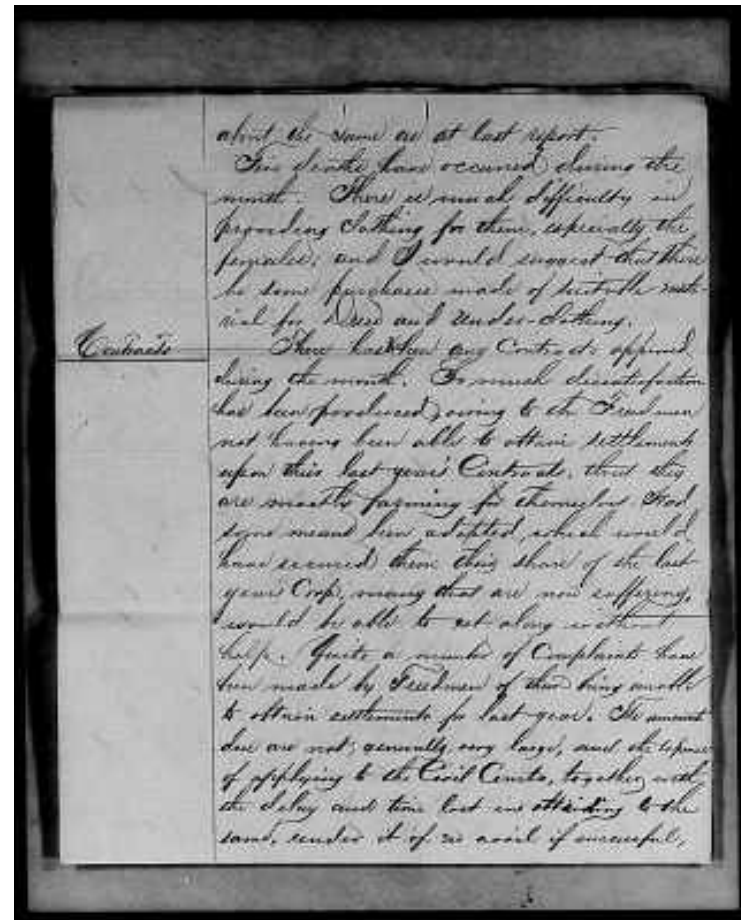 about the same as at last report.
Five deaths have occurred during the
month. There is much difficulty in
providing Clothing for them, especially the
females; and I would suggest that there
be some purchases made of suitable mate-
rial for Dress and Under-Clothing.
Contracts
There has been any Contracts approved
during the month. So much dissatisfaction
has been produced, owing to the Freedmen
not having been able to obtain settlements
upon their last year's Contracts, that they
are mostly farming for themselves. Had
some means been adopted, which would
have secured them their share of the last
years Crop, many that are now suffering,
would be able to get along without
help. Quite a number of Complaints have
been made by Freedmen of their being unable
to obtain settlements for last year. The amount
due are not, generally, very large, and the expense
of applying to the Civil Courts, together with
the delay and time lost in attending to the
same, render it of no avail if successful,